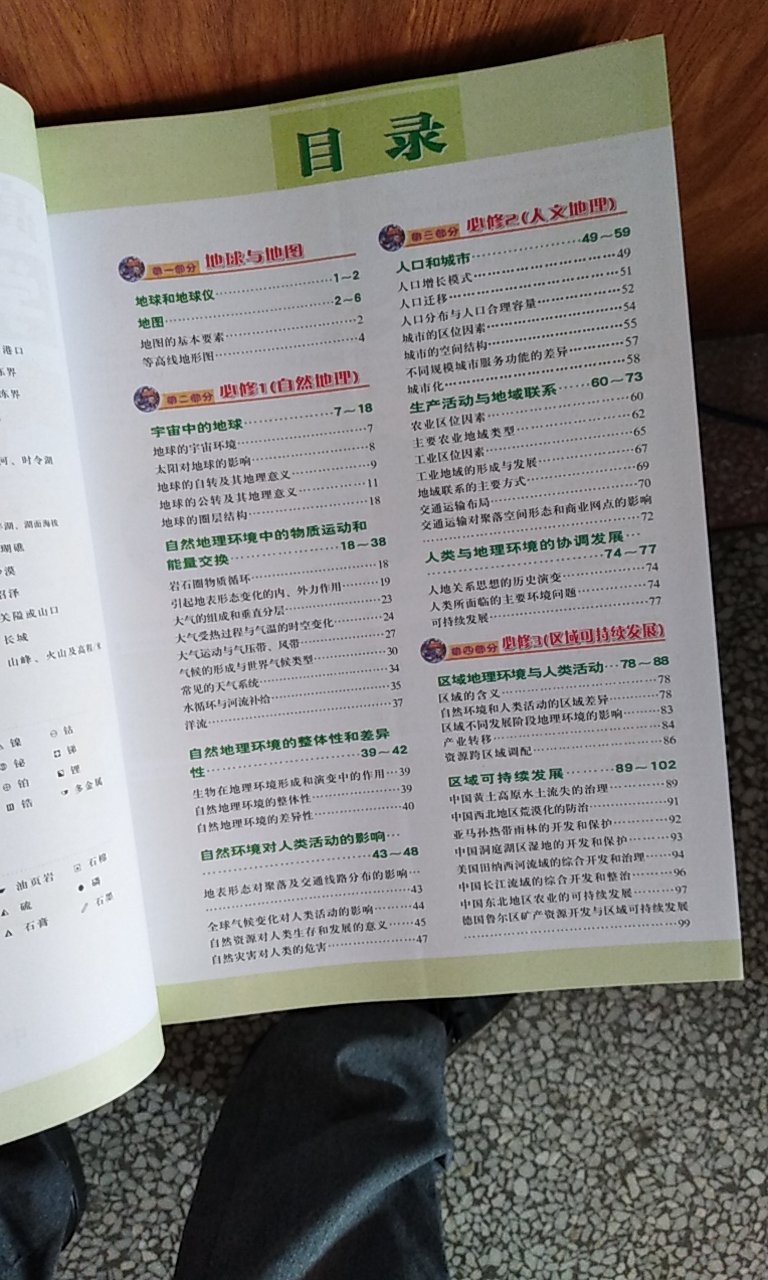 港口
河、时令湖
瑚礁
沼泽
关隘或山口
长城
山峰、火山及高程
镍
钴
铋
锑
铂
锂
锆
多金属
油页岩
石棉
硫
磷
石膏
石墨
目录
第一部分 地球与地图
地球和地球仪……1~2
地图……2~6
地图的基本要素……2
等高线地形图……4
第二部分 必修1(自然地理)
宇宙中的地球……7~18
地球的宇宙环境……7
太阳对地球的影响……8
地球的自转及其地理意义……9
地球的公转及其地理意义……11
地球的圈层结构……18
自然地理环境中的物质运动和
能量交换……18~38
岩石圈物质循环……18
引起地表形态变化的内、外力作用……19
大气的组成和垂直分层……23
大气受热过程与气温的时空变化……24
大气运动与气压带、风带……27
气候的形成与世界气候类型……30
常见的天气系统……34
水循环与河流补给……35
洋流……37
自然地理环境的整体性和差异
性……39~42
生物在地理环境形成和演变中的作用…39
自然地理环境的整体性……39
自然地理环境的差异性……40
自然环境对人类活动的影响…
……43~48
地表形态对聚落及交通线路分布的影响…
……43
全球气候变化对人类活动的影响……44
自然资源对人类生存和发展的意义……45
自然灾害对人类的危害……47
第三部分 必修2(人文地理)
人口和城市……49~59
人口增长模式……49
人口迁移……51
人口分布与人口合理容量……52
城市的区位因素……54
城市的空间结构……55
不同规模城市服务功能的差异……57
城市化……58
生产活动与地域联系……60~73
农业区位因素……60
主要农业地域类型……62
工业区位因素……65
工业地域的形成与发展……67
地域联系的主要方式……69
交通运输布局……70
交通运输对聚落空间形态和商业网点的影响
……72
人类与地理环境的协调发展…
……74~77
人地关系思想的历史演变……74
人类所面临的主要环境问题……74
可持续发展……77
第四部分 必修3(区域可持续发展)
区域地理环境与人类活动…78~88
区域的含义……78
自然环境和人类活动的区域差异……78
区域不同发展阶段地理环境的影响……83
产业转移……84
资源跨区域调配……86
区域可持续发展……89~102
中国黄土高原水土流失的治理……89
中国西北地区荒漠化的防治……91
亚马孙热带雨林的开发和保护……92
中国洞庭湖区湿地的开发和保护……93
美国田纳西河流域的综合开发和治理……94
中国长江流域的综合开发和整治……96
中国东北地区农业的可持续发展……97
德国鲁尔区矿产资源开发与区域可持续发展
……99